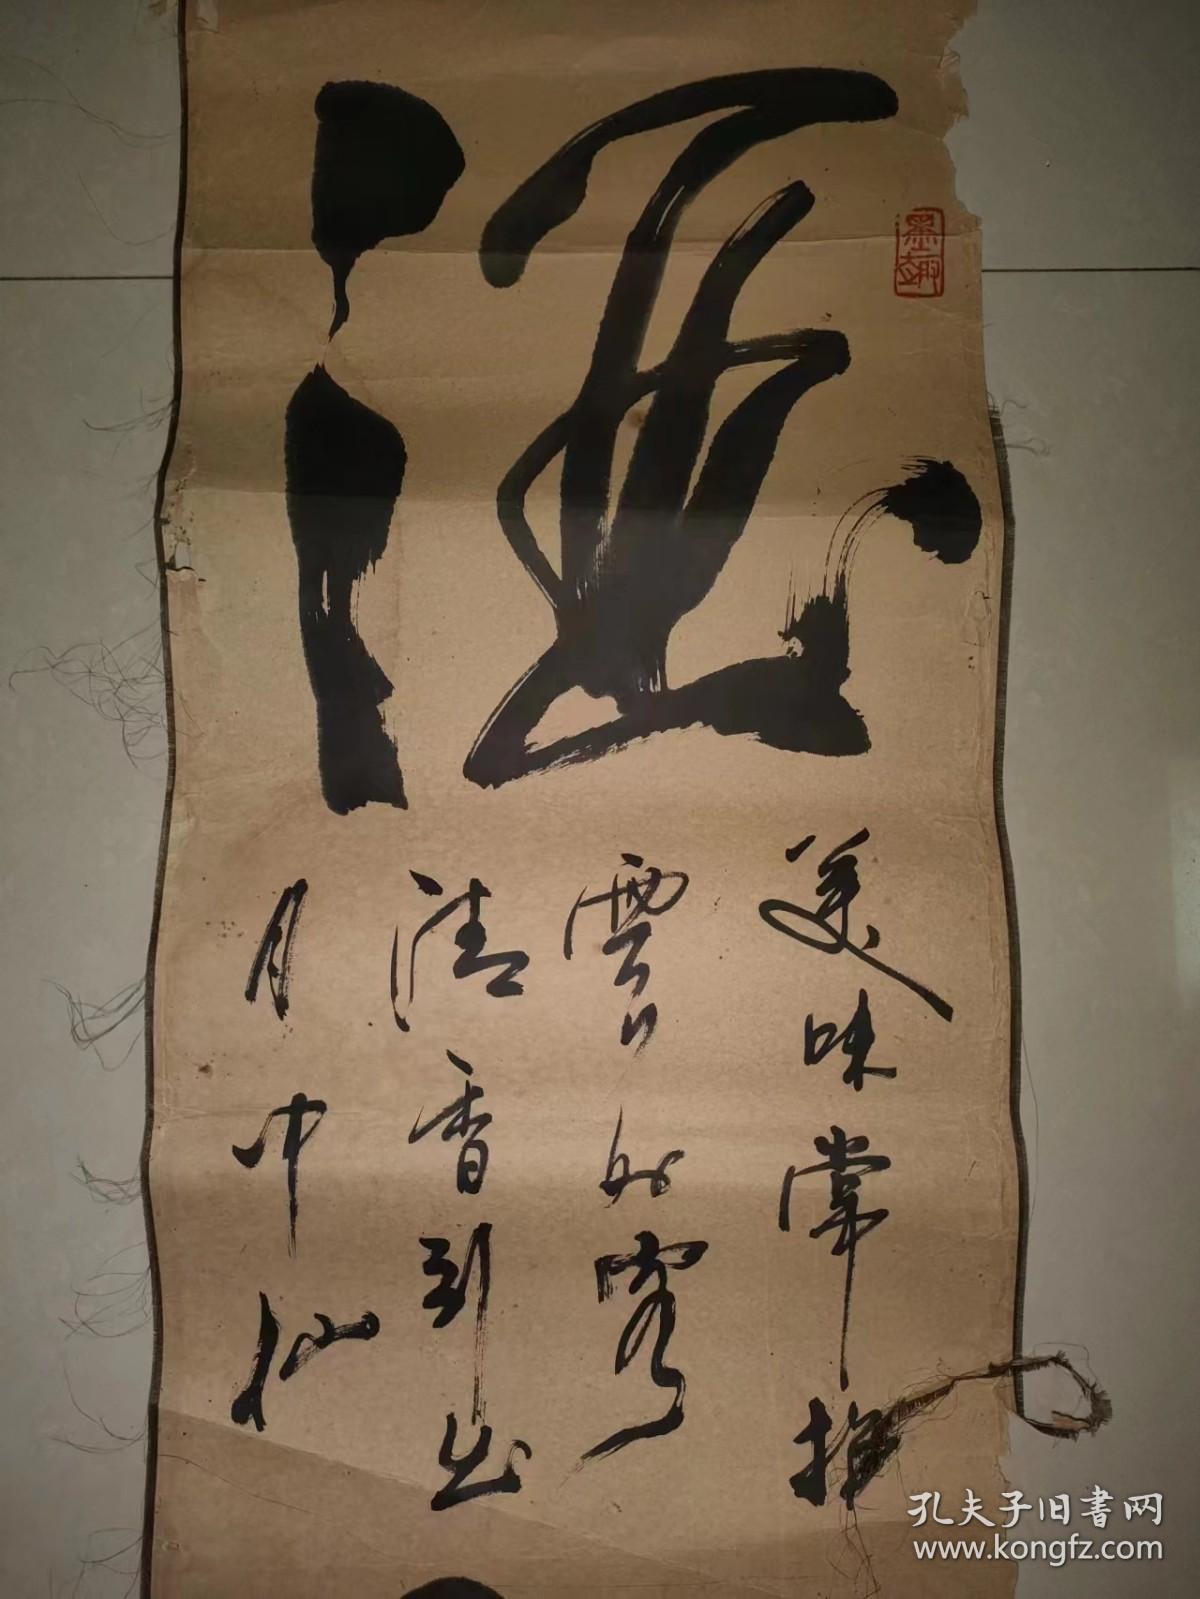 酒
墨趣
美味常招
雲外客
清香引出
月中仙
孔夫子旧书网
www.kongfz.com